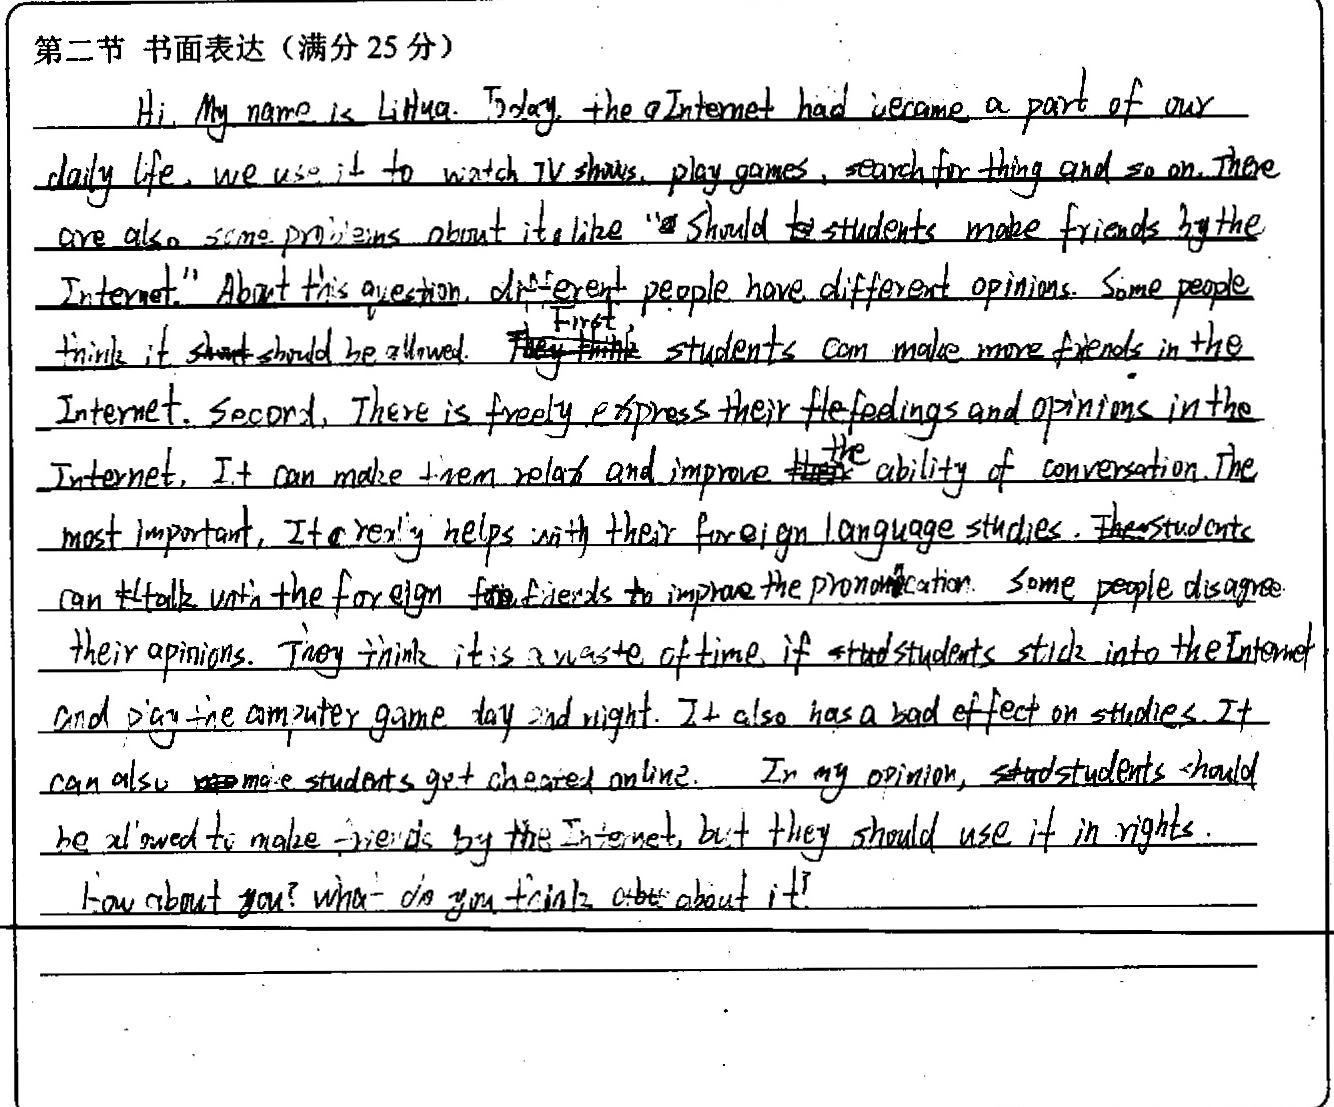 第二节 书面表达（满分 25 分）
Hi, My name is LiHua. Today, the Internet had became a part of our
daily life, we use it to watch TV shows, play games, search for thing and so on. There
are also some problems about it, like "Should students make friends by the
Internet." About this question, different people have different opinions. Some people
think it should be allowed. First, students can make more friends in the
Internet. Second, There is freely express their feelings and opinions in the
Internet, It can make them relax and improve the ability of conversation. The
most important, It really helps with their foreign language studies. Students
can talk with the foreign frieds to improve the pronoucation. Some people disagree
their apinions. They think it is a waste of time if students stick into the Internet
and play the computer game day and night. It also has a bad effect on studies. It
can also make students get cheared online. In my opinion, students should
be allowed to make friends by the Internet, but they should use it in rights.
How about you? What do you think about it?